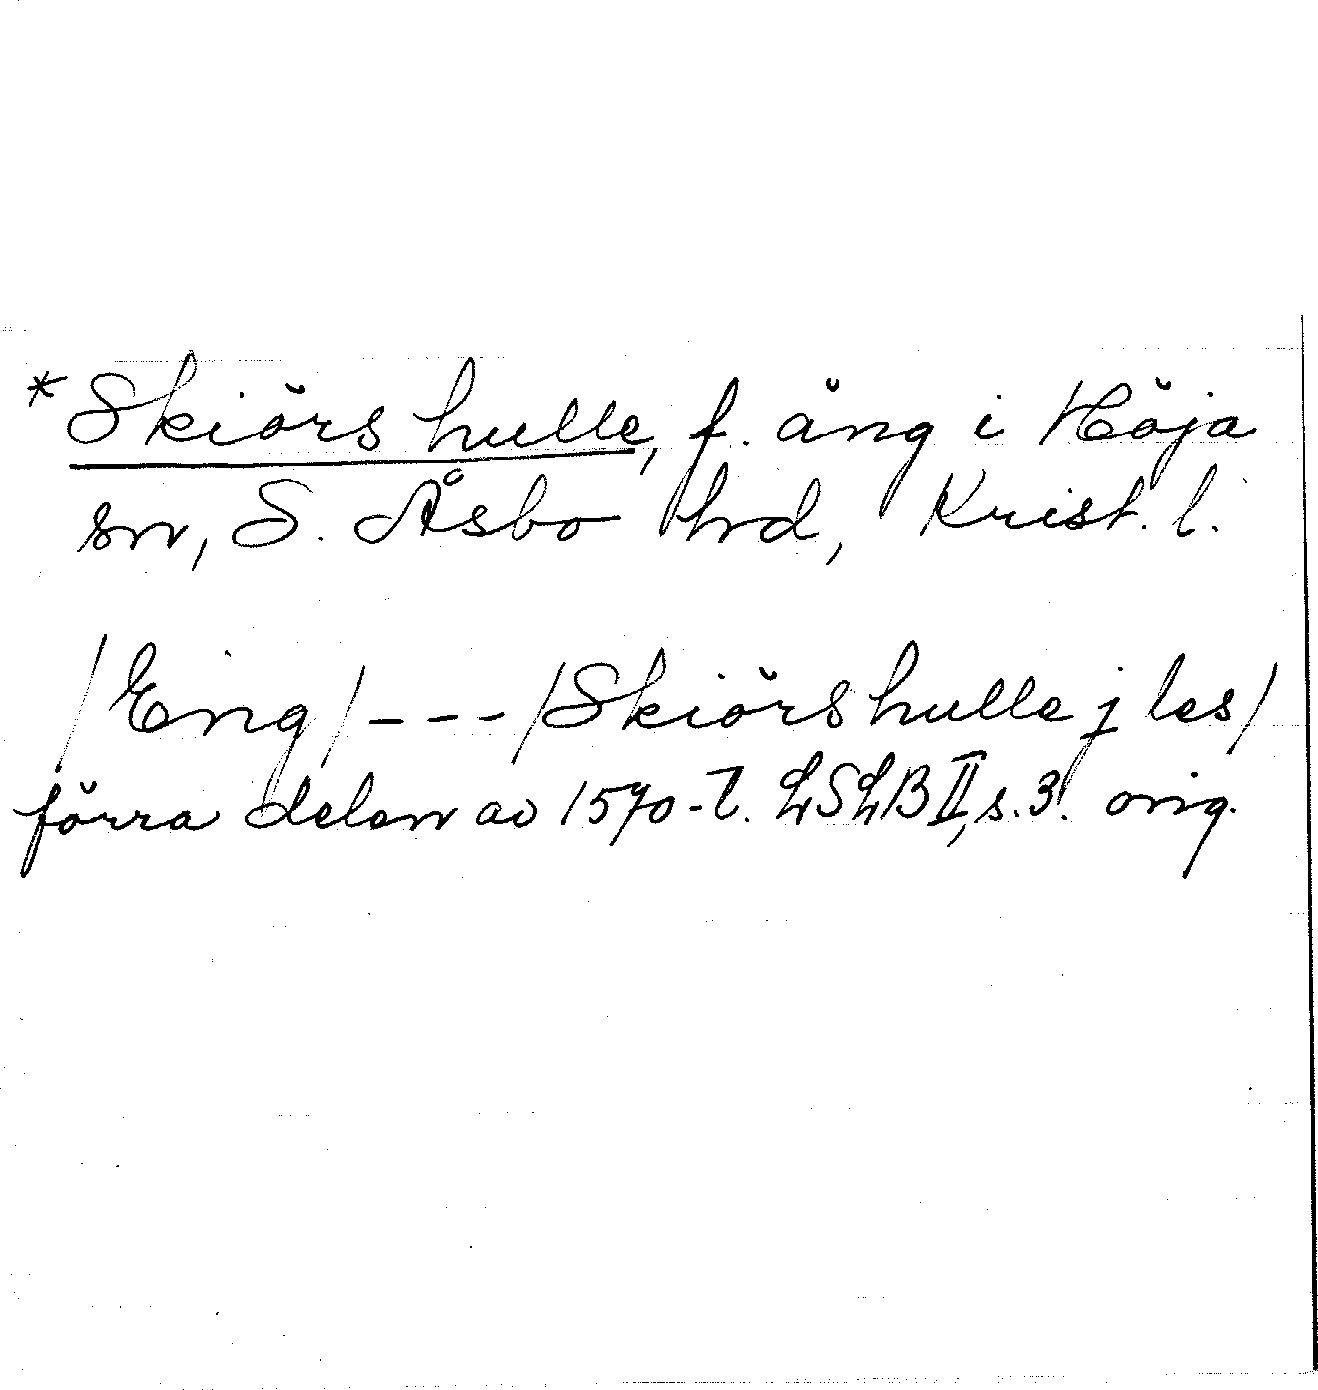 *Skiörs hulle, f. äng i Höja
sn, S. Åsbo hrd, Krist. l.
/Eng/ --- /Skiörs hulle j les/
förra delen av 1570-t. LSLB II, s. 3. orig.